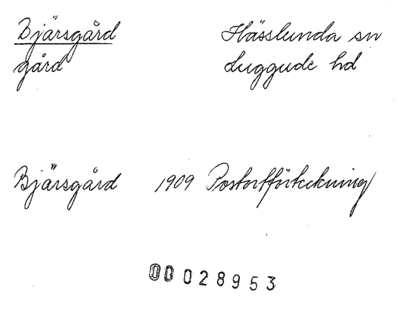 Bjärsgård Hässlunda sn
gård Luggude hd
Bjärsgård 1909 Postortförteckning
00028953